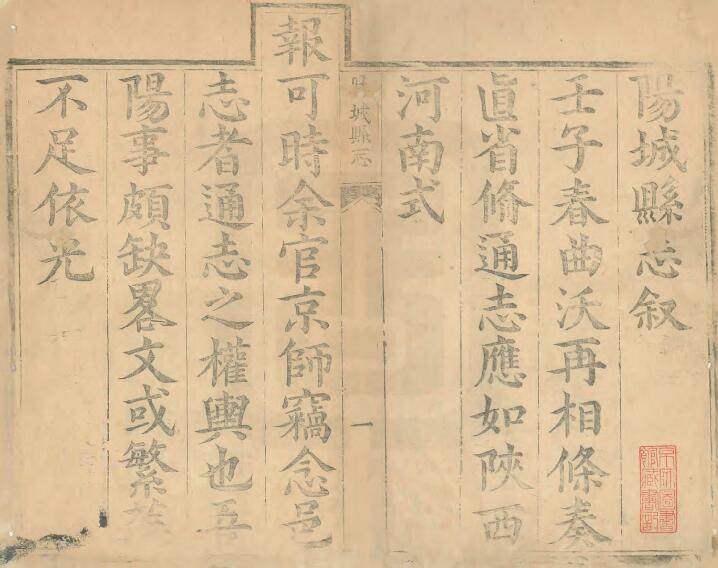 陽城縣志叙
壬子春曲沃再相條奏
直省脩通志應如陝西
河南式
城縣志
一
報可時余官京師竊念邑
志者通志之權輿也吾
陽事頗缺畧文或繁
不足依光
京師圖書館藏書記